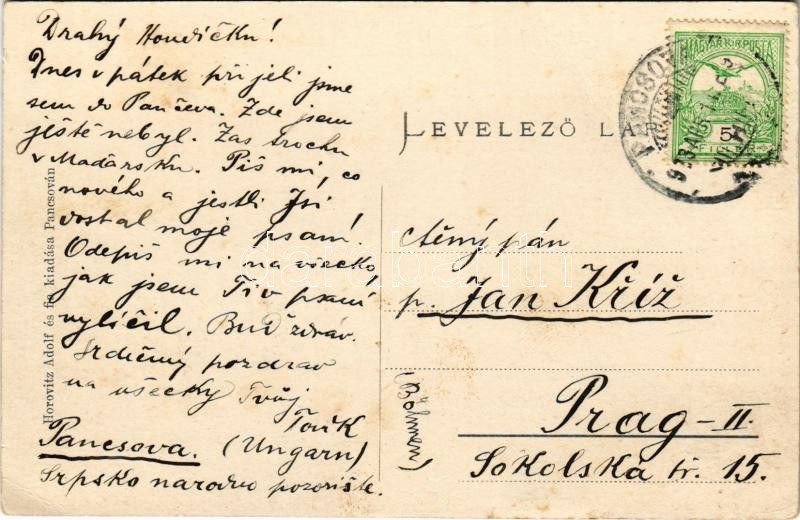 Drahý Houdíčku!
Dnes v pátek přijeli jsme
sem do Pančeva. Zde jsem
ještě nebyl. Zas trochu
v Maďarsku. Piš mi, co
nového a jestli Jsi
dostal moje psaní.
Odepiš mi na všecko,
jak jsem Ti v psaní
vylíčil. Buď zdráv.
Srdečný pozdrav
na všecky Tvůj
Pancsova. (Ungarn)
Srpsko narodno pozorište.
Horovitz Adolf és fia kiadása Pancsován
LEVELEZŐ LAP
MAGYAR KIR. POSTA
5
FILLÉR
PANCSOVA
Ctěný pán
p. Jan Kříž
(Böhmen)
Prag-II.
Sokolska tř. 15.